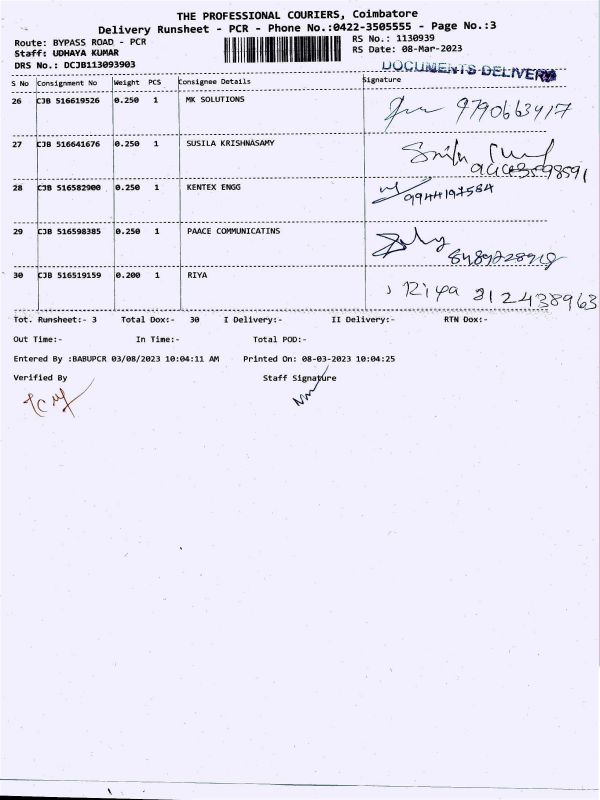 THE PROFESSIONAL COURIERS, Coimbatore
Delivery Runsheet - PCR - Phone No.:0422-3505555 - Page No.:3
Route: BYPASS ROAD - PCR
RS No.: 1130939
Staff: UDHAYA KUMAR
RS Date: 08-Mar-2023
DRS No.: DCJB113093903
DOCUMENTS DELIVERY
S No Consignment No Weight PCS Consignee Details Signature
26 CJB 516619526 0.250 1 MK SOLUTIONS 9790663417
27 CJB 516641676 0.250 1 SUSILA KRISHNASAMY
28 CJB 516582900 0.250 1 KENTEX ENGG 9944197584
29 CJB 516598385 0.250 1 PAACE COMMUNICATINS
30 CJB 516519159 0.200 1 RIYA Riya 812438963
Tot. Runsheet:- 3 Total Dox:- 30 I Delivery:- II Delivery:- RTN Dox:-
Out Time:- In Time:- Total POD:-
Entered By :BABUPCR 03/08/2023 10:04:11 AM Printed On: 08-03-2023 10:04:25
Verified By Staff Signature